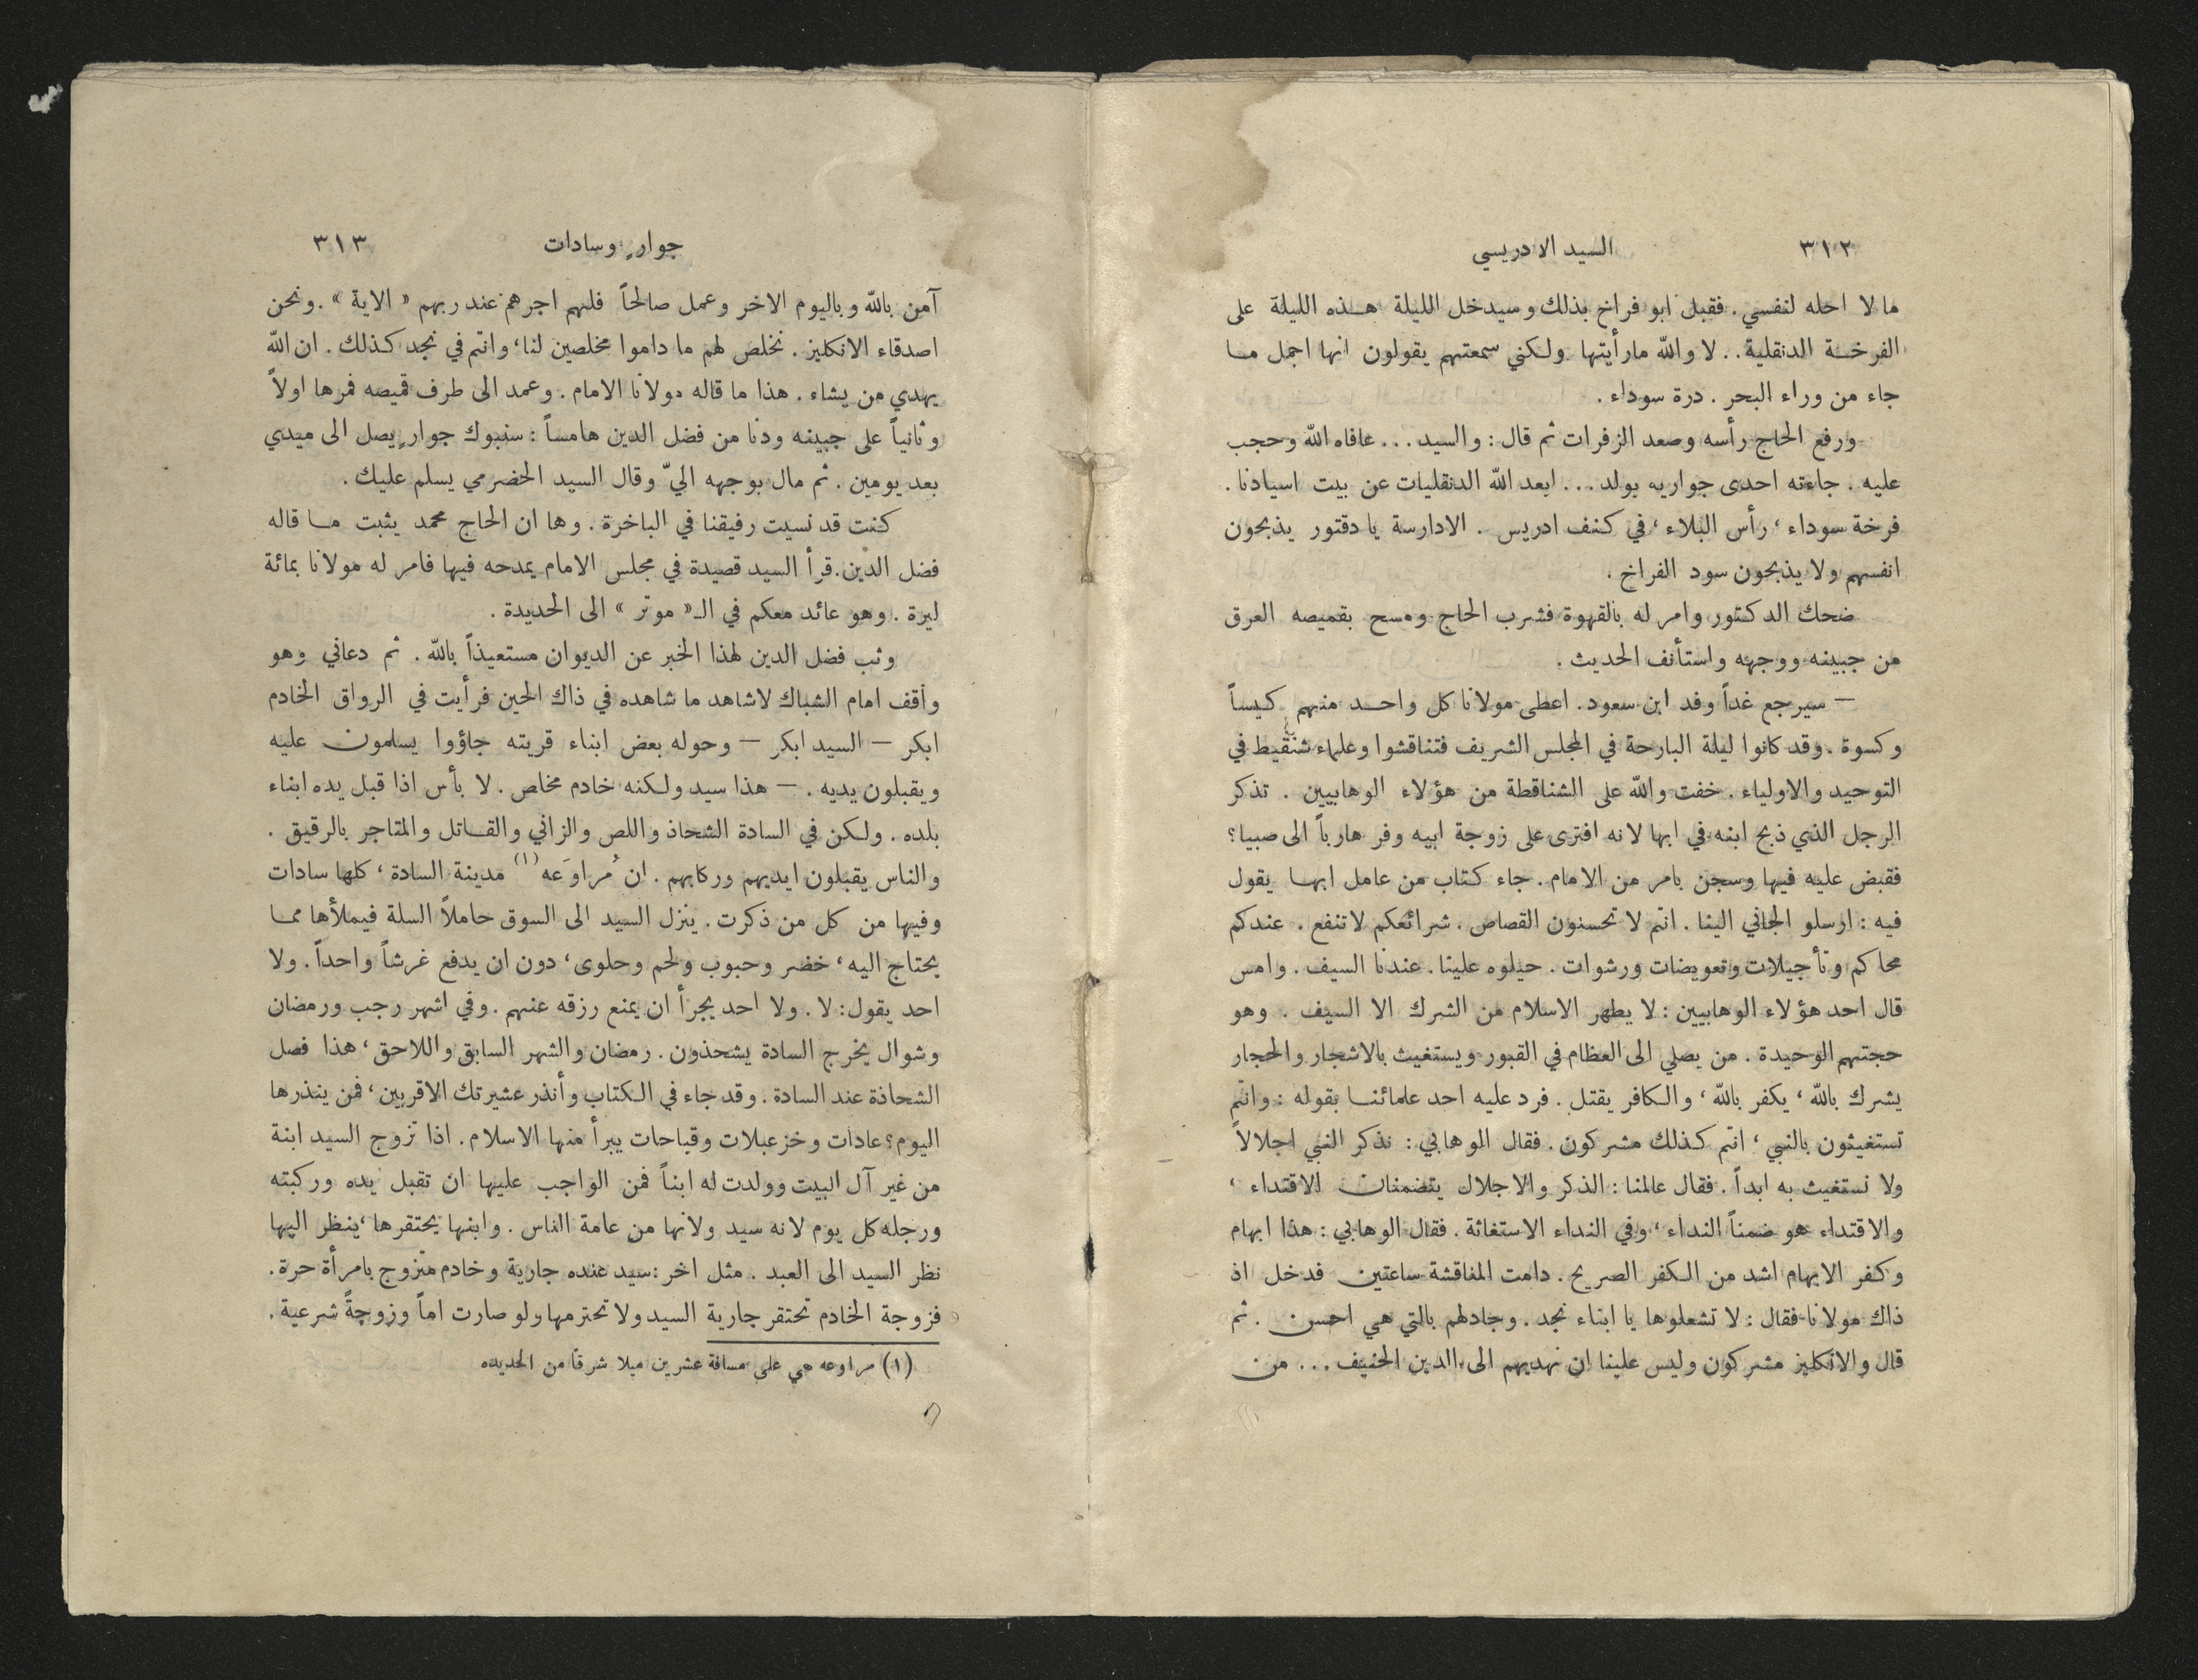 ٣١٢ السيد الادريسي
ما لا احله لنفسي . فقبل ابو فراخ بذلك وسيدخل الليلة هـذه الليلة على
الفرخـة الدنقلية . . لا والله مارأيتها ولكني سمعتهم يقولون انها اجمل مـا
جاء من وراء البحر . درة سوداء .
ورفع الحاج رأسه وصعد الزفرات ثم قال : والسيد . . . عافاه الله وحجب
عليه . جاءته احدى جواريه بولد . . . ابعد الله الدنقليات عن بيت اسيادنا .
فرخة سوداء ، رأس البلاء ، في كنف ادريس . الادارسة يا دقتور يذبحون
انفسهم ولا يذبحون سود الفراخ .
ضحك الدكتور وامر له بالقهوة فشرب الحاج ومسح بقميصه العرق
من جبينه ووجهه واستأنف الحديث .
— سيرجع غداً وفد ابن سعود . اعطى مولانا كل واحـد منهم كيساً
وكسوة . وقد كانوا ليلة البارحة في المجلس الشريف فتناقشوا وعلماء شنقيط في
التوحيد والاولياء . خفت والله على الشناقطة من هؤلاء الوهابيين . تذكر
الرجل الذي ذبح ابنه في ابها لانه افترى على زوجة ابيه وفر هارباً الى صبيا ؟
فقبض عليه فيها وسجن بامر من الامام . جاء كتاب من عامل ابهـا يقول
فيه : ارسلو الجاني الينا . انتم لا تحسنون القصاص . شرائعكم لا تنفع . عندكم
محاكم وتأجيلات وتعويضات ورشوات . حيلوه علينا . عندنا السيف . وامس
قال احد هؤلاء الوهابيين : لا يطهر الاسلام من الشرك الا السيف . وهو
حجتهم الوحيدة . من يصلي الى العظام في القبور ويستغيث بالاشجار والحجار
يشرك بالله ، يكفر بالله ، والكافر يقتل . فرد عليه احد علمائنـا بقوله : وانتم
تستغيثون بالنبي ، انتم كذلك مشركون . فقال الوهابي : نذكر النبي اجلالاً
ولا نستغيث به ابداً . فقال عالمنا : الذكر والاجلال يتضمنان الاقتداء ،
والاقتداء هو ضمناً النداء ، وفي النداء الاستغاثة . فقال الوهابي : هذا ابهام
وكفر الابهام اشد من الكفر الصريح . دامت المناقشة ساعتين فدخل اذ
ذاك مولانا فقال : لا تشعلوها يا ابناء نجد . وجادلهم بالتي هي احسن . ثم
قال والانكليز مشركون وليس علينا ان نهديهم الى الدين الحنيف . . . من
جوارٍ وسادات ٣١٣
آمن بالله وباليوم الاخر وعمل صالحاً فلهم اجرهم عند ربهم « الاية » . ونحن
اصدقاء الانكليز . نخلص لهم ما داموا مخلصين لنا ، وانتم في نجد كذلك . ان الله
يهدي من يشاء . هذا ما قاله مولانا الامام . وعمد الى طرف قميصه فمرها اولاً
وثانياً على جبينه ودنا من فضل الدين هامساً : سنبوك جوارٍ يصل الى ميدي
بعد يومين . ثم مال بوجهه اليّ وقال السيد الحضرمي يسلم عليك .
كنت قد نسيت رفيقنا في الباخرة . وها ان الحاج محمد يثبت مـا قاله
فضل الدين . قرأ السيد قصيدة في مجلس الامام يمدحه فيها فامر له مولانا بمائة
ليرة . وهو عائد معكم في الـ « موتر » الى الحديدة .
وثب فضل الدين لهذا الخبر عن الديوان مستعيذاً بالله . ثم دعاني وهو
واقف امام الشباك لاشاهد ما شاهده في ذاك الحين فرأيت في الرواق الخادم
ابكر — السيد ابكر — وحوله بعض ابناء قريته جاؤوا يسلمون عليه
ويقبلون يديه . — هذا سيد ولكنه خادم مخلص . لا بأس اذا قبل يده ابناء
بلده . ولكن في السادة الشحاذ واللص والزاني والقـاتل والمتاجر بالرقيق .
والناس يقبلون ايديهم وركابهم . ان مُراوَعه (١) مدينة السادة ، كلها سادات
وفيها من كل من ذكرت . ينزل السيد الى السوق حاملاً السلة فيملأها ممـا
يحتاج اليه ، خضر وحبوب ولحم وحلوى ، دون ان يدفع غرشاً واحداً . ولا
احد يقول : لا . ولا احد يجرأ ان يمنع رزقه عنهم . وفي اشهر رجب ورمضان
وشوال يخرج السادة يشحذون . رمضان والشهر السابق واللاحق ، هذا فصل
الشحاذة عند السادة . وقد جاء في الكتاب وأنذر عشيرتك الاقربين ، فمن ينذرها
اليوم ؟ عادات وخزعبلات وقباحات يبرأ منها الاسلام . اذا تزوج السيد ابنة
من غير آل البيت وولدت له ابناً فمن الواجب عليها ان تقبل يده وركبته
ورجله كل يوم لانه سيد ولانها من عامة الناس . وابنها يحتقرها ، ينظر اليها
نظر السيد الى العبد . مثل اخر : سيد عنده جارية وخادم متزوج بامرأة حرة .
فزوجة الخادم تحتقر جارية السيد ولا تحترمها ولو صارت اماً وزوجةً شرعية .
(١) مراوعه هي على مسافة عشرين ميلا شرقاً من الحديده